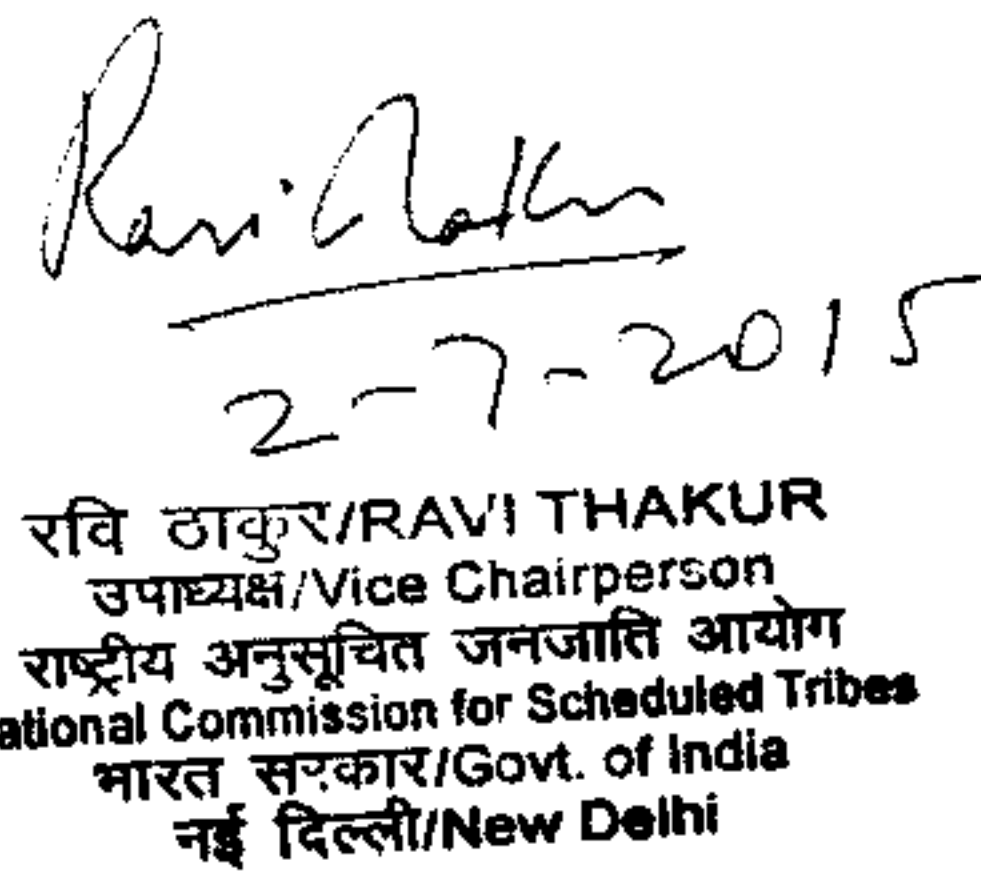 Ravi Thakur
2-7-2015
रवि ठाकुर/RAVI THAKUR
उपाध्यक्ष/Vice Chairperson
राष्ट्रीय अनुसूचित जनजाति आयोग
ational Commission for Scheduled Tribes
भारत सरकार/Govt. of India
नई दिल्ली/New Delhi